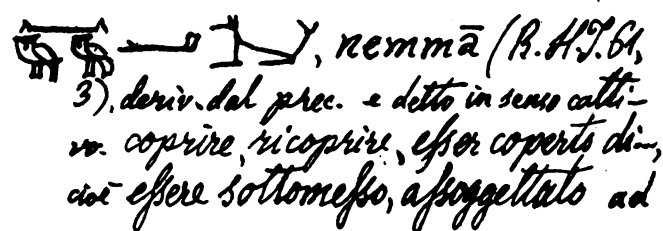 , nemmā (R.H.J. 61,
3), deriv. dal prec. e detto in senso catti-
vo. coprire, ricoprire, eſser coperto di...,
cioè eſsere sottomeſso, aſsoggettato ad